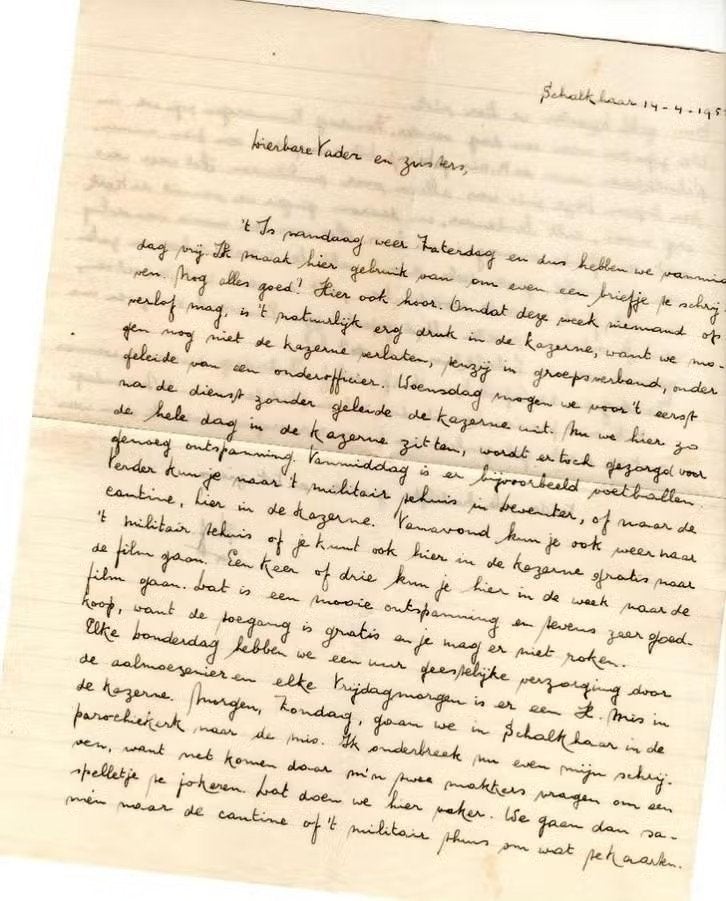 Schalkhaar 14-4-195
Dierbare Vader en zusters,
't Is vandaag weer Zaterdag en dus hebben we vanmid
dag vrij. Ik maak hier gebruik van om even een briefje te schrij-
ven. Nog alles goed? Hier ook hoor. Omdat deze week niemand op
verlof mag, is 't natuurlijk erg druk in de kazerne, want we mo-
gen nog niet de kazerne verlaten, tenzij in groepsverband, onder
geleide van een onderofficier. Woensdag mogen we voor 't eerst
na de dienst zonder geleide de kazerne uit. Nu we hier zo
de hele dag in de kazerne zitten, wordt er toch gezorgd voor
genoeg ontspanning. Vanmiddag is er bijvoorbeeld voetballen.
Verder kun je naar 't militair tehuis in Deventer, of naar de
cantine, hier in de kazerne. Vanavond kun je ook weer naar
't militair tehuis of je kunt ook hier in de kazerne gratis naar
de film gaan. Een keer of drie kun je hier in de week naar de
film gaan. Dat is een mooie ontspanning en tevens zeer goed-
koop, want de toegang is gratis en je mag er niet roken.
Elke Donderdag hebben we een uur geestelijke verzorging door
de aalmoezenier en elke Vrijdagmorgen is er een H. Mis in
de kazerne. Morgen, Zondag, gaan we in Schalkhaar in de
parochiekerk naar de mis. Ik onderbreek nu even mijn schrij-
ven, want net komen daar m'n twee makkers vragen om een
spelletje te jokeren. Dat doen we hier vaker. We gaan dan sa-
men naar de cantine of 't militair thuis om wat te kaarten.